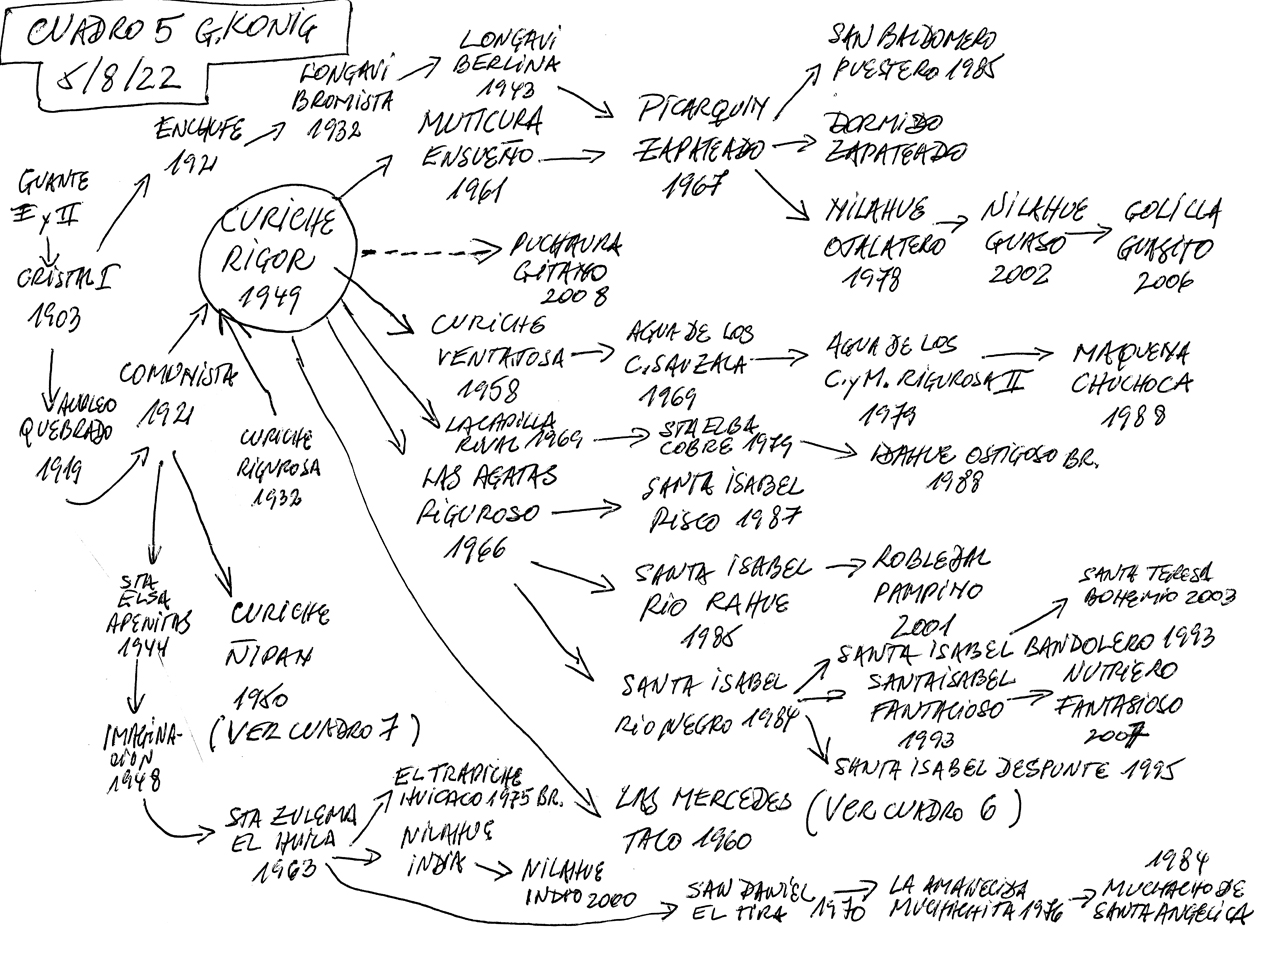 CUADRO 5 G.KONIG
5/8/22
GUANTE
I y II
CRISTAL I
1903
AUREO
QUEBRADO
1919
ENCHUFE
1921
LONGAVI
BROMISTA
1932
LONGAVI
BERLINA
1943
MUTICURA
ENSUEÑO
1961
PICARQUIN
ZAPATEADO
1967
SAN BALDOMERO
PUESTERO 1985
DORMIDO
ZAPATEADO
NILAHUE
OJALATERO
1978
NILAHUE
GUASO
2002
GOLILLA
GUASITO
2006
CURICHE
RIGOR
1949
PUCHAURA
GITANO
2008
COMUNISTA
1921
CURICHE
RIGUROSA
1932
CURICHE
VENTAJOSA
1958
AGUA DE LOS
C. SAUZALA
1969
AGUA DE LOS
C. y M. RIGUROSA II
1979
MAQUENA
CHUCHOCA
1988
LACADILLA
RIVAL 1969
STA ELBA
COBRE 1979
IDAHUE OSTIGOSO BR.
1988
LAS AGATAS
RIGUROSO
1966
SANTA ISABEL
RISCO 1987
SANTA ISABEL
RIO RAHUE
1985
ROBLEDAL
PAMPINO
2001
SANTA ISABEL
RIO NEGRO 1984
SANTA ISABEL BANDOLERO 1993
SANTA TERESA
BOHEMIO 2003
SANTA ISABEL
FANTACIOSO
1993
NUTRIERO
FANTASIOSO
2007
SANTA ISABEL DESPUNTE 1995
LAS MERCEDES
TACO 1960
(VER CUADRO 6)
STA
ELSA
APENITAS
1944
CURICHE
ÑIPAN
1950
(VER CUADRO 7)
IMAGINA-
CION
1948
STA ZULEMA
EL HUILA
1963
EL TRAPICHE
HUICACO 1975 BR.
NILAHUE
INDIA
NILAHUE
INDIO 2000
SAN DANIEL
EL TIRA 1970
LA AMANECIDA
MUCHACHITA 1976
1984
MUCHACHO DE
SANTA ANGELICA